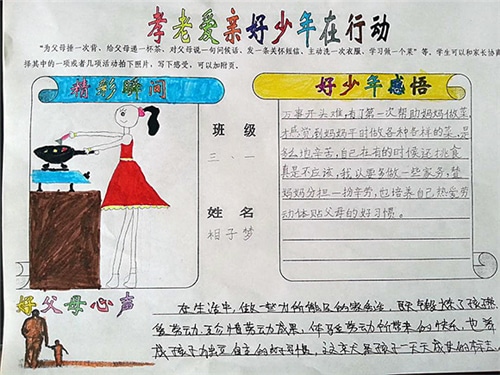 孝老爱亲好少年在行动
"为父母捶一次背、给父母递一杯茶、对父母说一句问候话、发一条关怀短信、主动洗一次衣服、学习做一个菜"等，学生可以和家长协商
择其中的一项或者几项活动拍下照片，写下感受，可以加附页。
精彩瞬间
班级
三、一
姓名
相子梦
好少年感悟
万事开头难，有了第一次帮助妈妈做菜，
才感觉到妈妈平时做各种各样的菜，是
多么地辛苦，自己在有的时候还挑食
真是不应该，我以后要多做一些家务，替
妈妈分担一份辛劳，也培养自己热爱劳
动体贴父母的好习惯。
好父母心声
在生活中，做一些力所能及的家务活，既锻炼了孩子
爱劳动、珍惜劳动成果，体验劳动所带来的快乐，也养
成孩子
自立的好习惯，这实在是孩子一天天成长的标志。